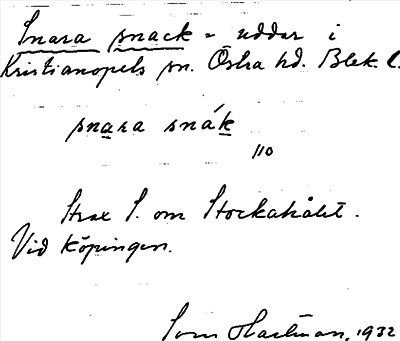 Snara snack = uddar i
Kristianopels sn. Östra hd. Blek. l.
snara snák
110
Strax S. om Stockahålet.
Vid Köpingen.
Tom Hartman, 1932